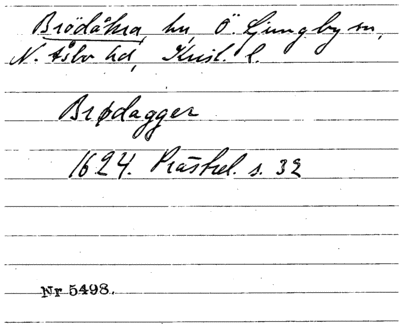 Brödåkra, hn, Ö. Ljungby sn,
N. Åsbo hd, Krist. l.
Brødagger
1624. Prästrel. s. 32
Nr 5498.